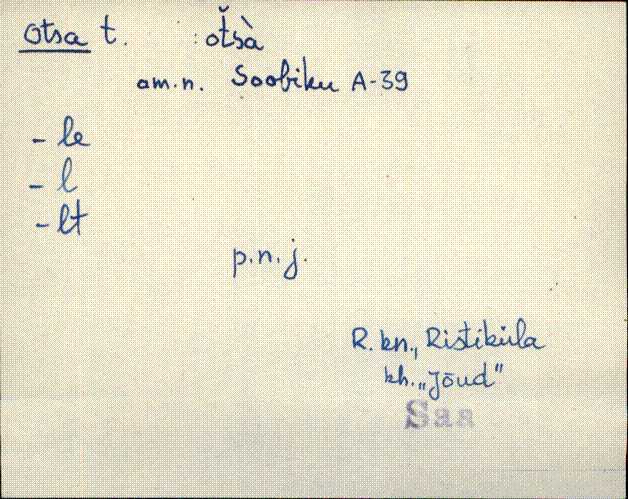 Otsa t. : ot̆sà
am.n. Soobiku A-39
- le
- l
- lt
p.n.j.
R. kn., Ristiküla
kh. „Jõud"
Saa